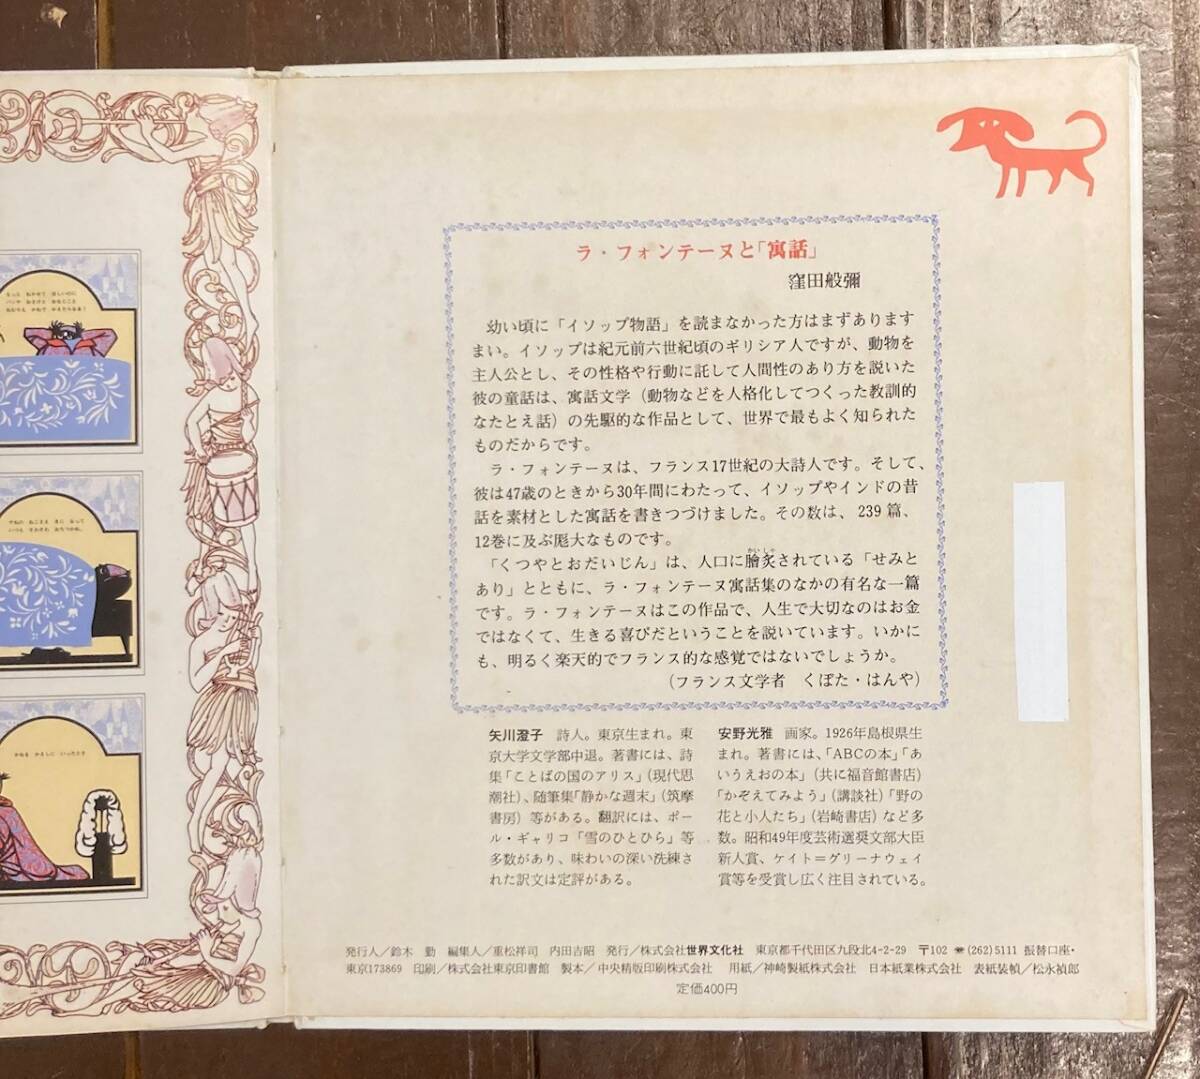 ラ・フォンテーヌと「寓話」
窪田般彌
幼い頃に「イソップ物語」を読まなかった方はまずあります
まい。イソップは紀元前六世紀頃のギリシア人ですが、動物を
主人公とし、その性格や行動に託して人間性のあり方を説いた
彼の童話は、寓話文学（動物などを人格化してつくった教訓的
なたとえ話）の先駆的な作品として、世界で最もよく知られた
ものだからです。
ラ・フォンテーヌは、フランス17世紀の大詩人です。そして、
彼は47歳のときから30年間にわたって、イソップやインドの昔
話を素材とした寓話を書きつづけました。その数は、239篇、
12巻に及ぶ厖大なものです。
「くつやとおだいじん」は、人口に膾炙されている「せみと
あり」とともに、ラ・フォンテーヌ寓話集のなかの有名な一篇
です。ラ・フォンテーヌはこの作品で、人生で大切なのはお金
ではなくて、生きる喜びだということを説いています。いかに
も、明るく楽天的でフランス的な感覚ではないでしょうか。
（フランス文学者　くぼた・はんや）
矢川澄子　詩人。東京生まれ。東
京大学文学部中退。著書には、詩
集「ことばの国のアリス」（現代思
潮社）、随筆集「静かな週末」（筑摩
書房）等がある。翻訳には、ポー
ル・ギャリコ「雪のひとひら」等
多数があり、味わいの深い洗練さ
れた訳文は定評がある。
安野光雅　画家。1926年島根県生
まれ。著書には、「ABCの本」「あ
いうえおの本」（共に福音館書店）
「かぞえてみよう」（講談社）「野の
花と小人たち」（岩崎書店）など多
数。昭和49年度芸術選奨文部大臣
新人賞、ケイト＝グリーナウェイ
賞等を受賞し広く注目されている。
発行人／鈴木　勤　編集人／重松祥司　内田吉昭　発行／株式会社世界文化社　東京都千代田区九段北4-2-29　〒102　☎(262)5111　振替口座・
東京173869　印刷／株式会社東京印書館　製本／中央精版印刷株式会社　用紙／神崎製紙株式会社　日本紙業株式会社　表紙装幀／松永禎郎
定価400円